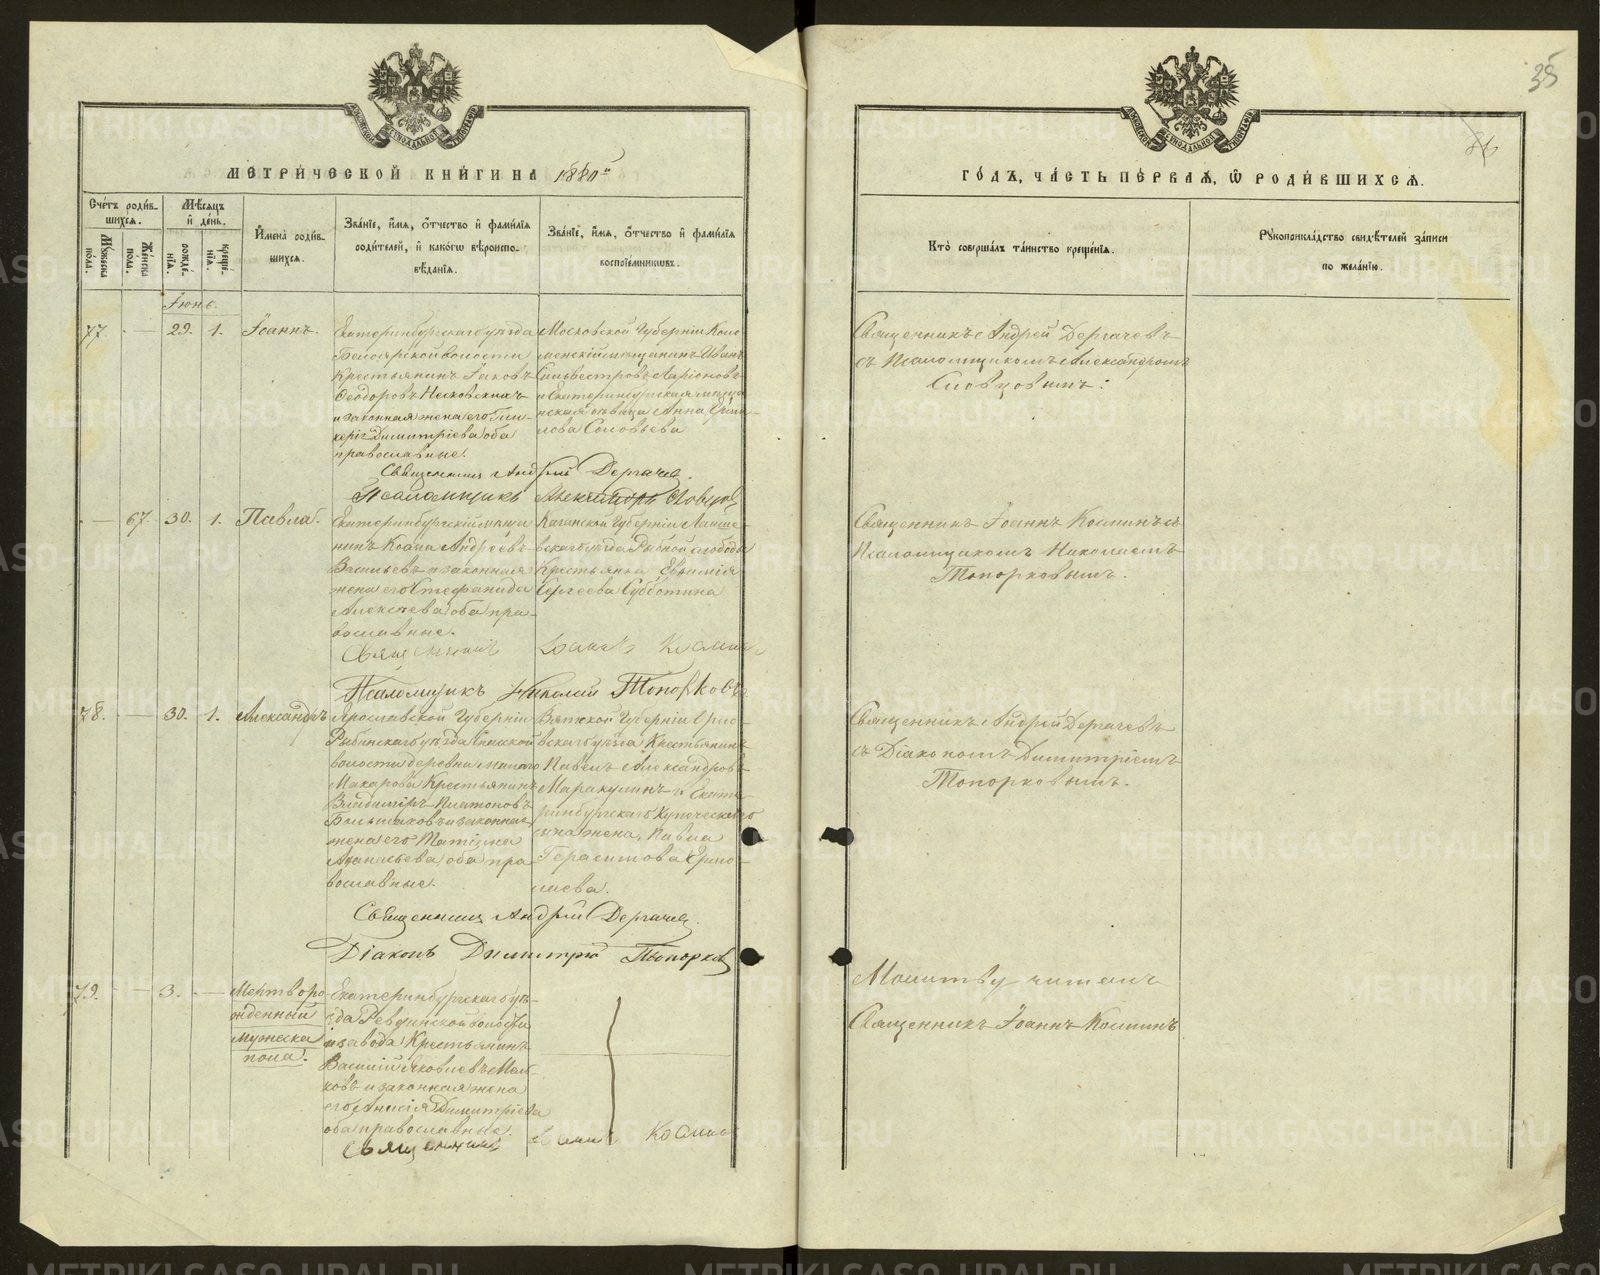 35
36
МЕТРИ́ЧЕСКОЙ КНИ́ГИ НА 1880й
ГО́ДЪ, ЧА́СТЬ ПЕ́РВАѦ, Ѡ҆ РОДИ́ВШИХСѦ.
Сче́тъ роди́в-
шихсѧ.
Мꙋ́жеска
по́ла.
Же́нска
пола.
Мѣ́сѧцъ
и҆ де́нь.
рожде́-
нїѧ.
креще́-
нїѧ.
И҆мена̀ роди́в-
шихсѧ.
Зва́нїе, и҆́мѧ, ѻ҆́тчество и҆ фами́лїѧ
роди́телей, и҆ како́гѡ вѣроиспо-
вѣ́данїѧ.
Зва́нїе, и҆́мѧ, ѻ҆́тчество и҆ фами́лїѧ
воспрїе́мникѡвъ.
Кто̀ соверша́лъ та́инство креще́нїѧ.
Рꙋкоприкла́дство свидѣ́телей за́писи
по жела́нїю.
Іюнь.
77. — 29. 1. Іоаннъ.
Екатеринбургскаго уѣзда
Белоярской волости
Крестьянинъ Іаковъ
Ѳеодоровъ
и законная жена его
Димитріева оба
православные.
Московской Губерніи Коло-
менскій мѣщанинъ Иванъ
Сильвестровъ Ларіоновъ
и Екатеринбургская мѣща-
нская дѣвица Анна
Соловьева
Священникъ Андрей Дергачевъ
съ Псаломщикомъ Александромъ
Словцовымъ.
Священникъ Андрей Дергачев.
Псаломщикъ Александръ Словцовъ
— 67. 30. 1. Павла.
Екатеринбургскій мѣща-
нинъ Козма Андреевъ
Васильевъ и законная
жена его Стефанида
Алексѣева оба пра-
вославные.
Казанской Губерніи Лаише-
вскаго уѣзда Рыбной слободы
Крестьянка Евѳимія
Сергеева Субботина
Священникъ Іоаннъ Косминъ съ
Псаломщикомъ Николаемъ
Топорковымъ.
Священникъ Іоаннъ Косминъ
Псаломщикъ Николай Топорковъ
78. — 30. 1. Александръ
Ярославской Губерніи
Рыбинскаго уѣзда
волости деревни малаго
Макарова Крестьянинъ
Владиміръ Платоновъ
Большаковъ и законная
жена его Татіана
Аѳанасьева оба пра-
вославные.
Вятской Губерніи Орло-
вскаго уѣзда Крестьянинъ
Павелъ Александровъ
Маракулинъ и Екате-
ринбургскаго Купеческаго
сына жена, Павла
Герасимова Ермо-
лаева.
Священникъ Андрей Дергачевъ
съ Діакономъ Димитріемъ
Топорковымъ.
Священникъ Андрей Дергачев.
Діаконъ Димитрій Топорков
79. — 3. — Мертворо-
жденный
мужеска
пола.
Екатеринбургскаго уѣ-
зда Ревдинской волости
и завода Крестьянинъ
Василій Яковлевъ
и законная жена
его Анисія Димитріева
оба православные.
Молитву читалъ
Священникъ Іоаннъ Косминъ
Священникъ Іоаннъ Косминъ
METRIKI.GASO-URAL.RU